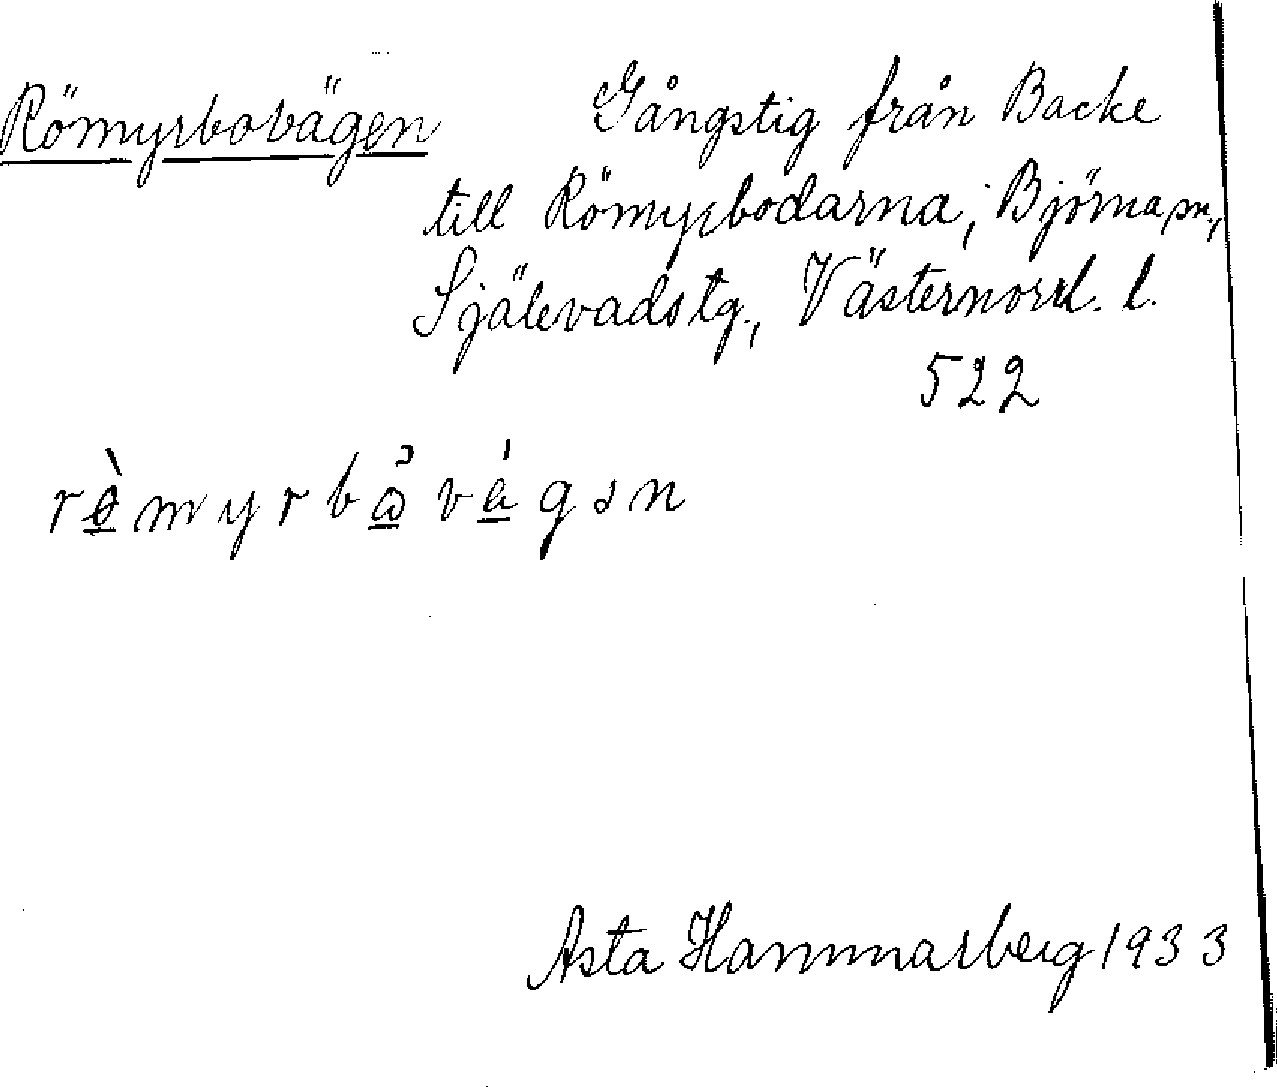 Römyrbovägen Gångstig från Backe
till Römyrbodarna, Björna sn.,
Själevads tg., Västernorrl. l.
522
Asta Hammarberg 1933